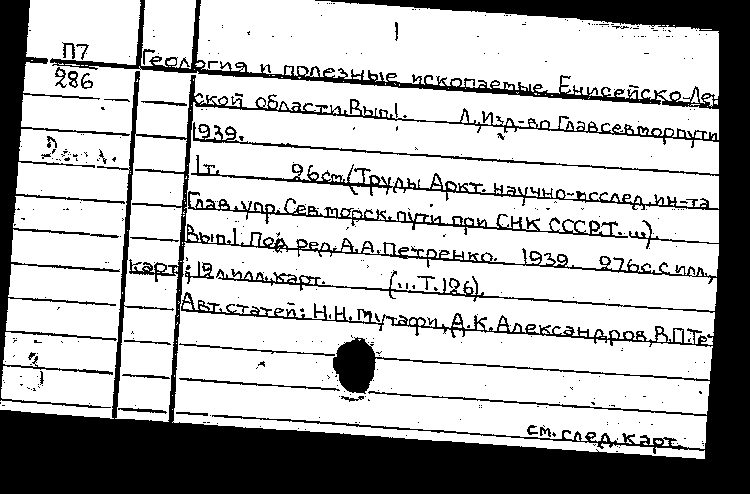 1
П7
286
Геология и полезные ископаемые Енисейско-Лен
ской области. Вып.1. Л., Изд-во Главсевморпути
1939.
1т. 26см. (Труды Аркт. научно-исслед. ин-та
Глав. упр. Сев. морск. пути при СНК СССР. Т. ...).
Вып.1. Под ред. А.А. Петренко. 1939. 276с. с илл.,
карт; 12 л. илл., карт. (...Т.126).
Авт. статей: Н.Н. Мутафи, Д.К. Александров, В.П. Те
см. след. карт.